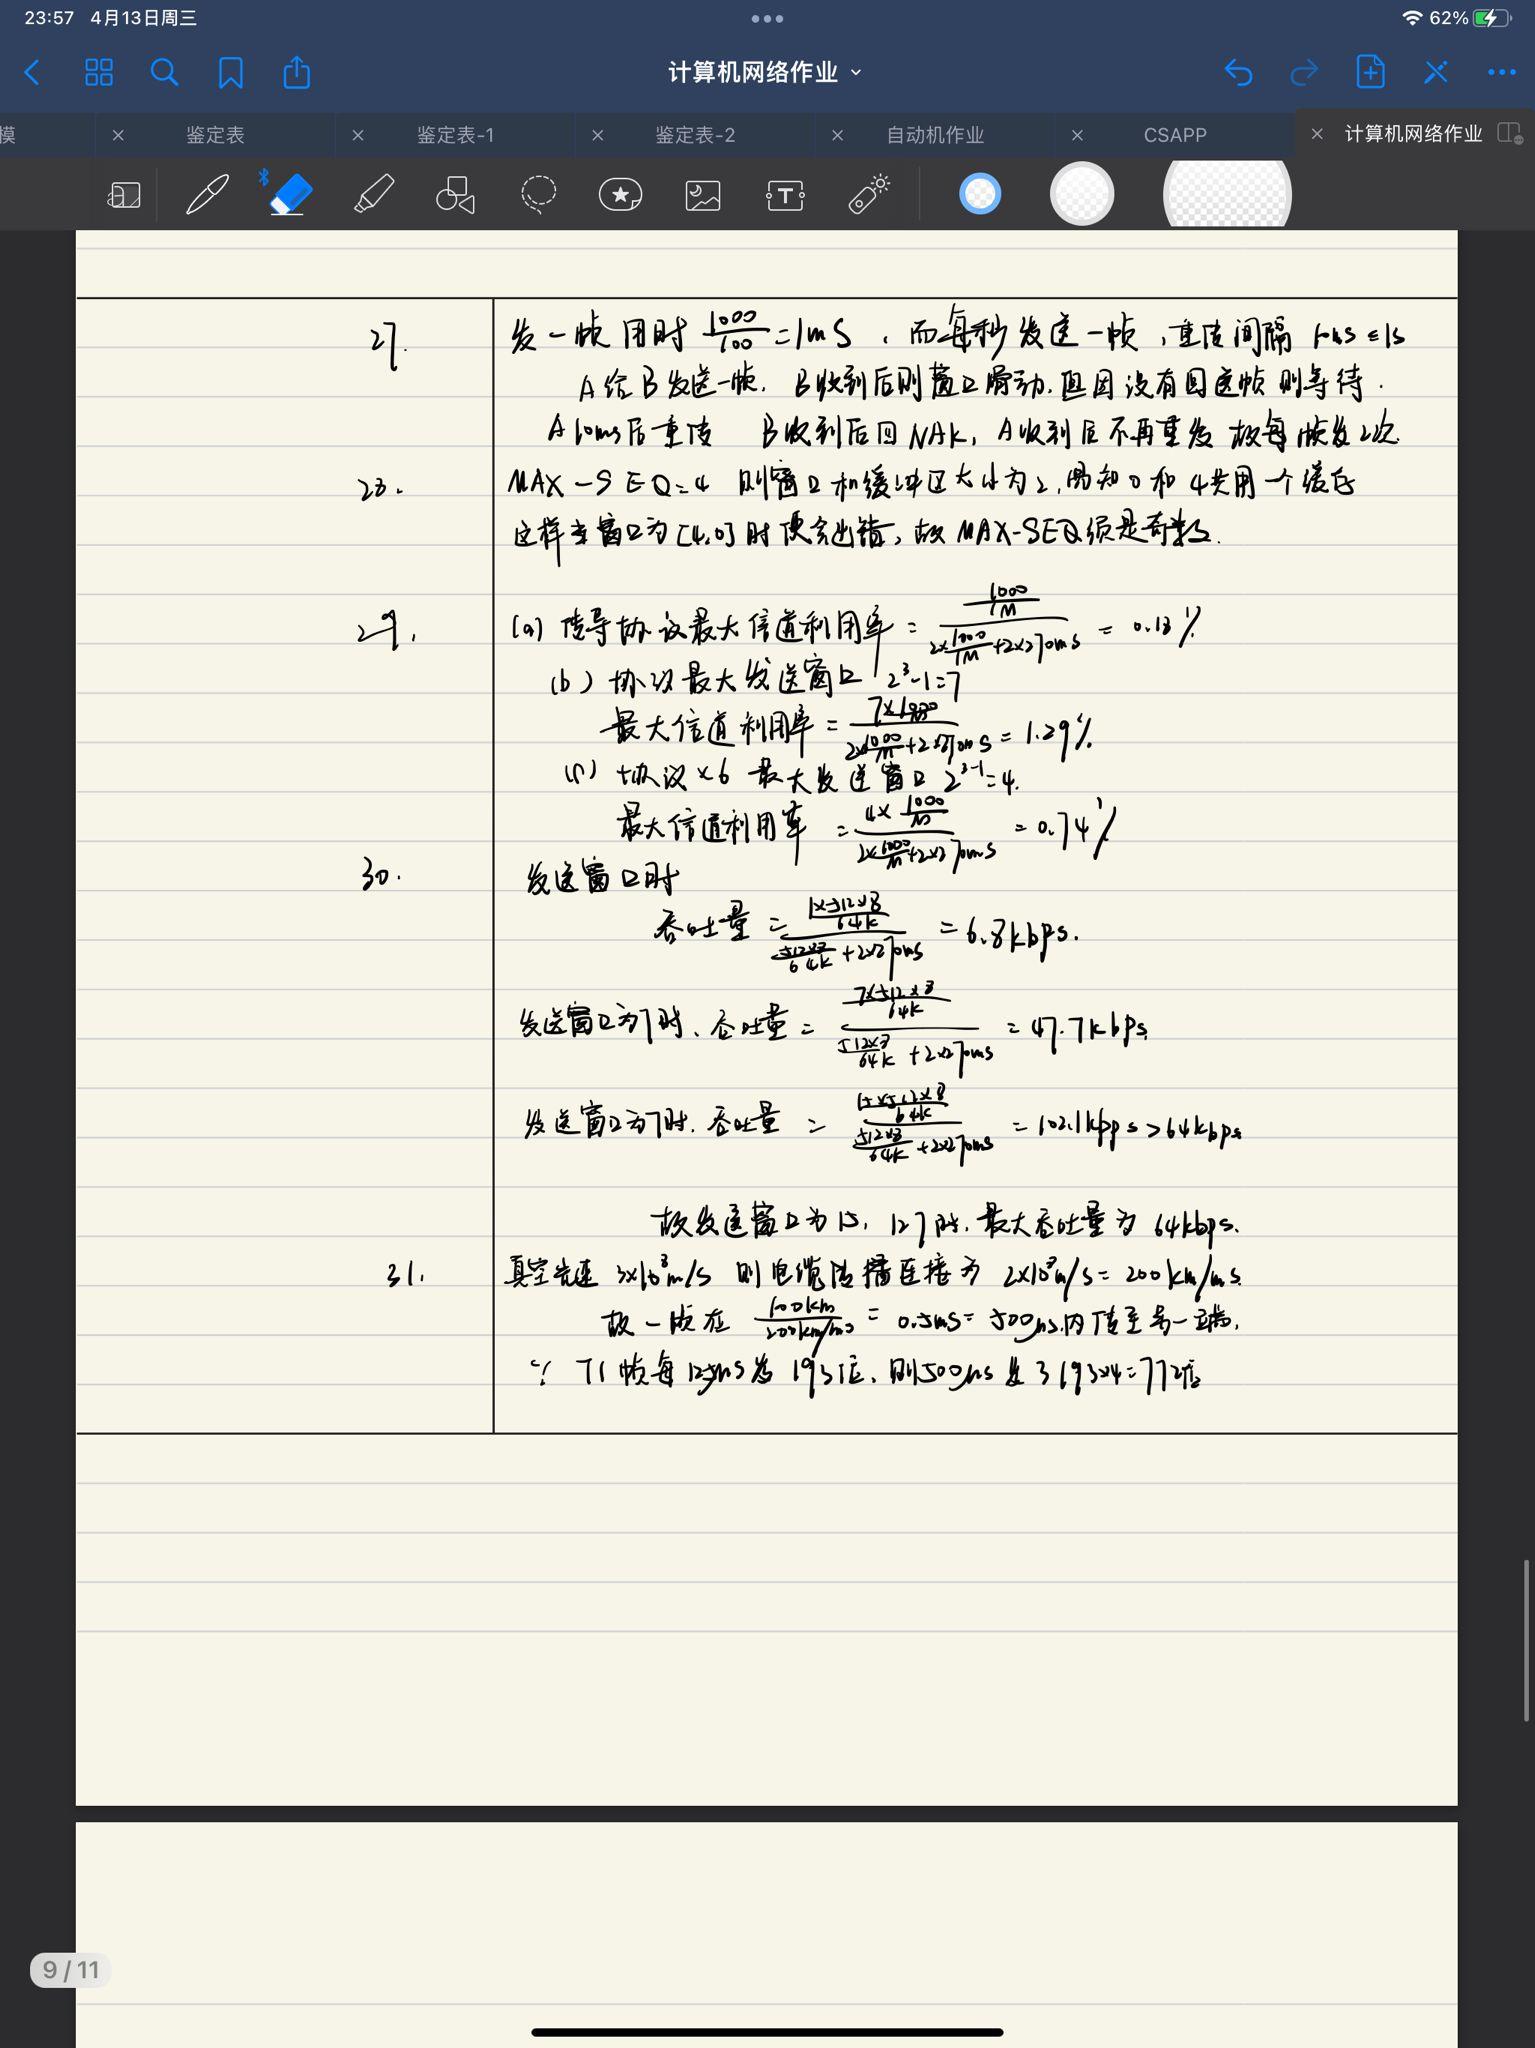 23:57 4月13日周三
62%
计算机网络作业
模
鉴定表
鉴定表-1
鉴定表-2
自动机作业
CSAPP
计算机网络作业
27. 发一帧用时 1000/100 = 1ms, 而每秒发送一帧, 重传间隔 10ms ≤ 1s
A给B发送一帧. B收到后则窗口滑动. 但因没有回送帧则等待.
A 10ms后重传 B收到后回NAK, A收到后不再重发 故每帧发2次.
28. MAX-SEQ=4 则窗口和缓冲区大小为2, 易知0和4共用一个缓存
这样当窗口为[4,0]时便会出错, 故MAX-SEQ须是奇数.
29. (a) 信导协议最大信道利用率 = (1000/1M)/(2×1000/1M+2×270ms) = 0.18%
(b) 协议最大发送窗口 2³-1=7
最大信道利用率 = (7×1000/M)/(2×1000/M+2×270ms) = 1.29%
(c) 协议×6 最大发送窗口 2³⁻¹=4.
最大信道利用率 = (4×1000/M)/(2×1000/M+2×270ms) = 0.74%
30. 发送窗口时
吞吐量 = (1×512×8/64k)/(512×8/64k+2×270ms) = 6.8kbps.
发送窗口为7时、吞吐量 = (7×512×8/64k)/(512×8/64k+2×270ms) = 47.7kbps
发送窗口为7时. 吞吐量 = (15×512×8/64k)/(512×8/64k+2×270ms) = 102.1kbps>64kbps
故发送窗口为15, 127时, 最大吞吐量为64kbps.
31. 真空光速 3×10⁸m/s 则电缆传播连接为 2×10⁸m/s = 200km/ms
故一帧在 100km/200km/ms = 0.5ms = 500μs内传至另一端,
∵ T1帧每125μs为193位, 则500μs发了193×4=772位
9 / 11